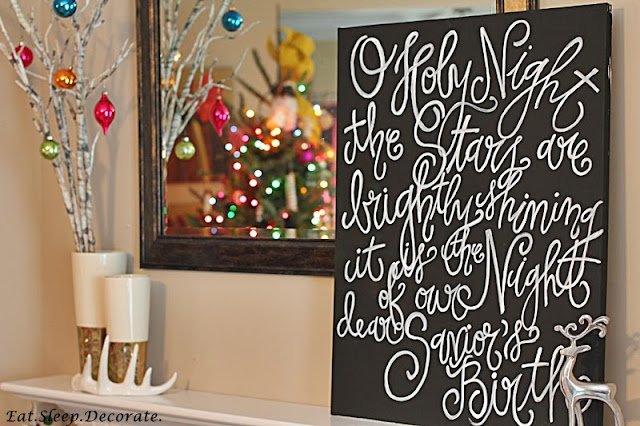 O' Holy Night
the Stars are
brightly shining
it is the Night
of our
dear Savior's
Birth
Eat.Sleep.Decorate.